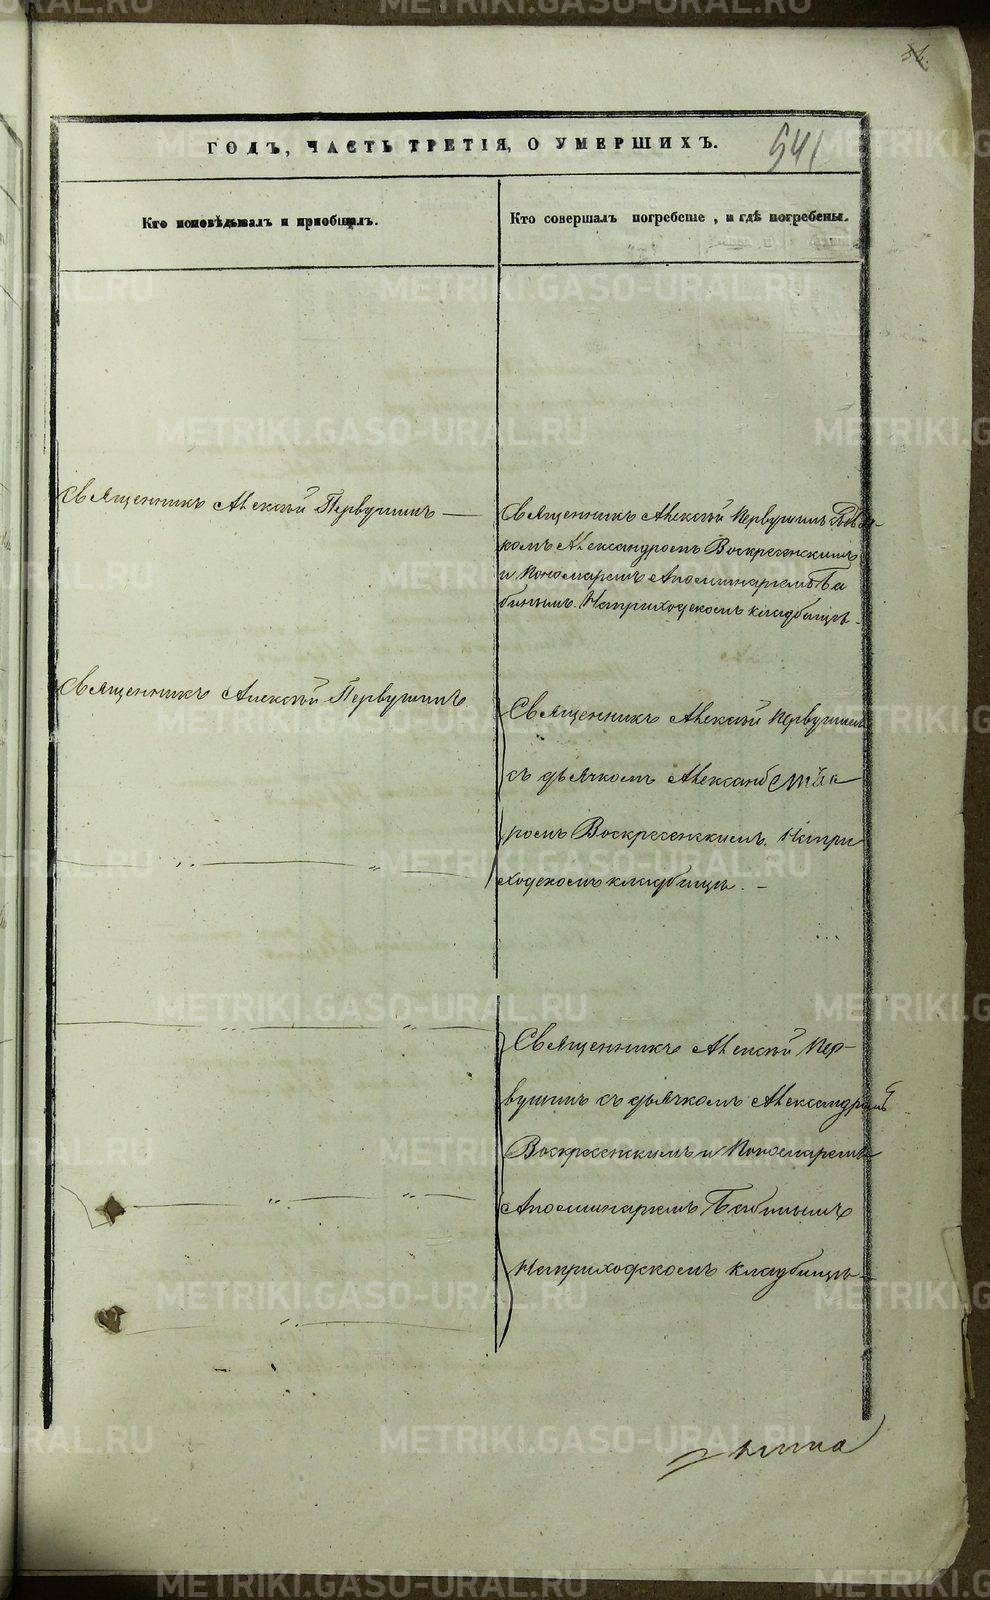 86.
ГОДЪ, ЧАСТЬ ТРЕТІЯ, О УМЕРШИХЪ.
541
Кто исповѣдывалъ и пріобщалъ.
Кто совершалъ погребеніе, и гдѣ погребены.
Священникъ Алексѣй Первушинъ
Священникъ Алексѣй Первушинъ
комъ Александромъ Воскресенскимъ
и Пономаремъ Аполлинаріемъ Ба
бинымъ. На приходскомъ кладбищѣ.
Священникъ Алексѣй Первушинъ
Священникъ Алексѣй Первушинъ
съ дьячкомъ Александ
ромъ Воскресенскимъ. На при
ходскомъ кладбищѣ. -
Священникъ Алексѣй Пер-
вушинъ съ дьячкомъ Александромъ
Воскресенскимъ и Пономаремъ
Аполлинаріемъ Бабинымъ
На приходскомъ кладбищѣ
METRIKI.GASO-URAL.RU